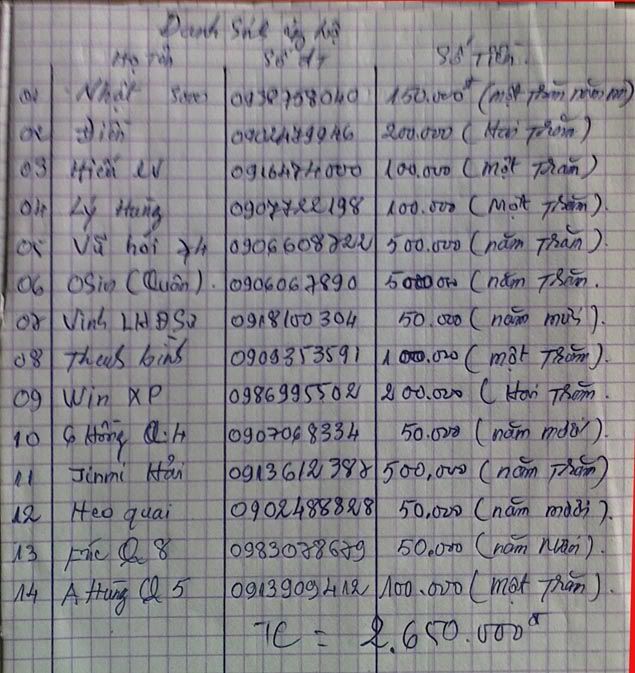 Danh Sách ủng hộ
Họ tên Số ĐT Số Tiền
01 Nhật 0938708040 150.000đ (một trăm năm mươi)
02 Điền 0902479946 200.000 (Hai trăm)
03 Hiền LV 0916474000 100.000 (một trăm)
04 Lý Hùng 0907722198 100.000 (Một trăm).
05 Vũ hói 74 0906608722 500.000 (năm trăm)
06 OSin (Quân). 0906067890 500000 (năm trăm.
07 Vinh 0918100304 50.000 (năm mươi).
08 Thanh bình 0909353591 100.000 (một trăm).
09 Win XP 0986995502 200.000 (Hai trăm.
10 Hồng Q.4 0907068334 50.000 (năm mươi).
11 Jinmi Hải 0913612387 500,000 (năm trăm)
12 Heo quai 0902488828 50.000 (năm mươi).
13 Q 8 0983078679 50.000 (năm mươi).
14 A Hùng Q 5 0913909412 100.000 (Một trăm).
TC = 2.650.000đ